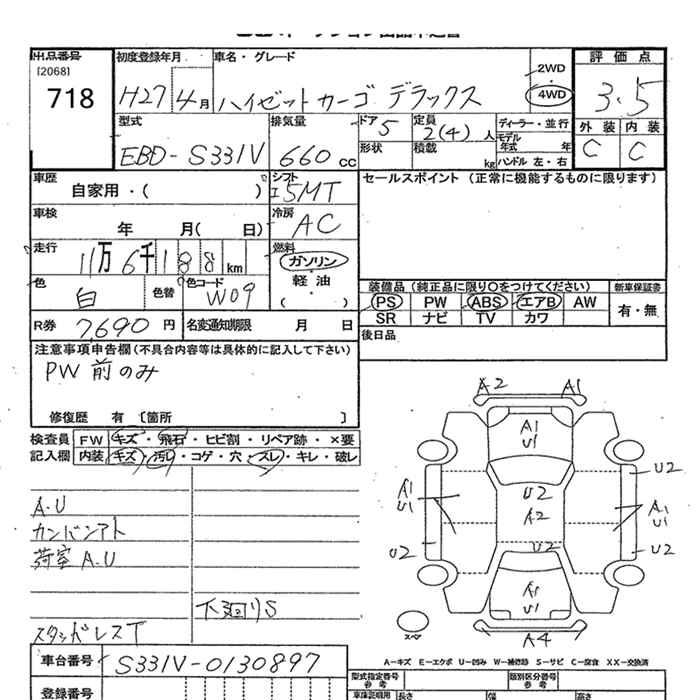 出品番号 初度登録年月 車名・グレード 評価点
(2068)
718 H27 4月 ハイゼットカーゴ デラックス 2WD・4WD 3.5
型式 排気量 ドア 5 定員 2(4)人 ディーラー・並行 外装 内装
EBD-S331V 660cc 形状 積載 kg モデル年式 年 C C
ハンドル 左・右
車歴 自家用・( ) シフト 5MT セールスポイント (正常に機能するものに限ります)
車検 年 月( 日) 冷房 AC
走行 11万6千188km 燃料 ガソリン・軽油・( )
色 白 色替 色コード W09 装備品 (純正品に限り○をつけてください) 新車保証書
PS PW ABS エアB AW 有・無
SR ナビ TV カワ
R券 7,690円 名変通知期限 月 日 後日品
注意事項申告欄 (不具合内容等は具体的に記入して下さい)
PW 前のみ
修復歴 有 〔箇所 〕
検査員 FW キズ・飛石・ヒビ割・リペア跡・×要
記入欄 内装 キズ・汚れ・コゲ・穴・スレ・キレ・破レ
A2 A1
A1
U1
U2
A1
U1
U2
A2
A1
U1
U2 U2 U2
A1
U1
A4
A.U
カンバンアト
荷室 A.U
下廻りS
スタッドレスT
スペア
A-キズ E-エクボ U-凹み W-補修跡 S-サビ C-腐食 XX-交換済
車台番号 S331V-0130897
型式指定番号 参考 類別区分番号 参考
登録番号 車庫証明用 長さ 幅 高さ